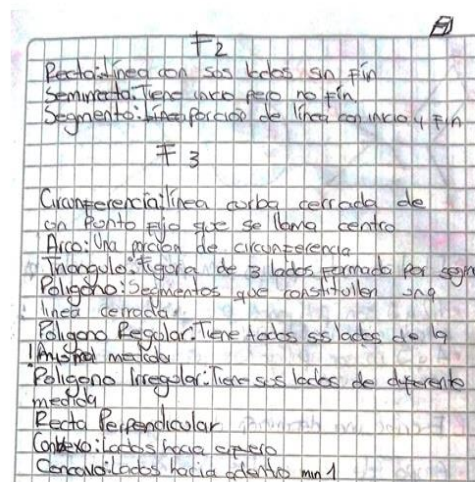 F2
Recta: línea con sos lados sin fin
Semirrecta: Tiene inicio pero no fin
Segmento: porción de línea con inicio y fin
F 3
Circunferencia: línea curba cerrada de
un punto fijo que se llama centro
Arco: Una porcion de circunferencia
Triangulo: figura de 3 lados formada por segm
Poligono: Segmentos que constitullen una
linea cerrada.
Poligono Regular: Tiene todos ss lados de la
misma medida
Poligono Irregular: Tiene sus lados de diferente
medida
Recta Perpendicular
Conbexo: Lados hacia afuera
Concavo: Lados hacia adentro min 1